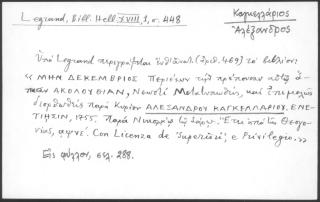 Legrand, Bibl. Hell. XVIII, 1, σ. 448
Καγκελλάριος
Ἀλέξανδρος
Ὑπὸ Legrand περιγράφεται (ἀριθ. 469) τὸ βιβλίον:
«ΜΗΝ ΔΕΚΕΜΒΡΙΟΣ Περιέχων τὴν πρέπουσαν αὐτῷ
ἅπασαν ΑΚΟΛΟΥΘΙΑΝ, Νεωστὶ Μετατυπωθεὶς, καὶ ἐπιμελῶς
διορθωθεὶς παρὰ Κυρίου ΑΛΕΞΑΝΔΡΟΥ ΚΑΓΚΕΛΛΑΡΙΟΥ, ΕΝΕ-
ΤΙΗΣΙΝ, 1755. Παρὰ Νικολάῳ τῷ Σάρῳ. Ἔτει ἀπὸ τῆς Θεογο-
νίας, αψνέ. Con Licenza de' Superiori; e Privilegio.»
Εἰς φύλλον, σελ. 288.